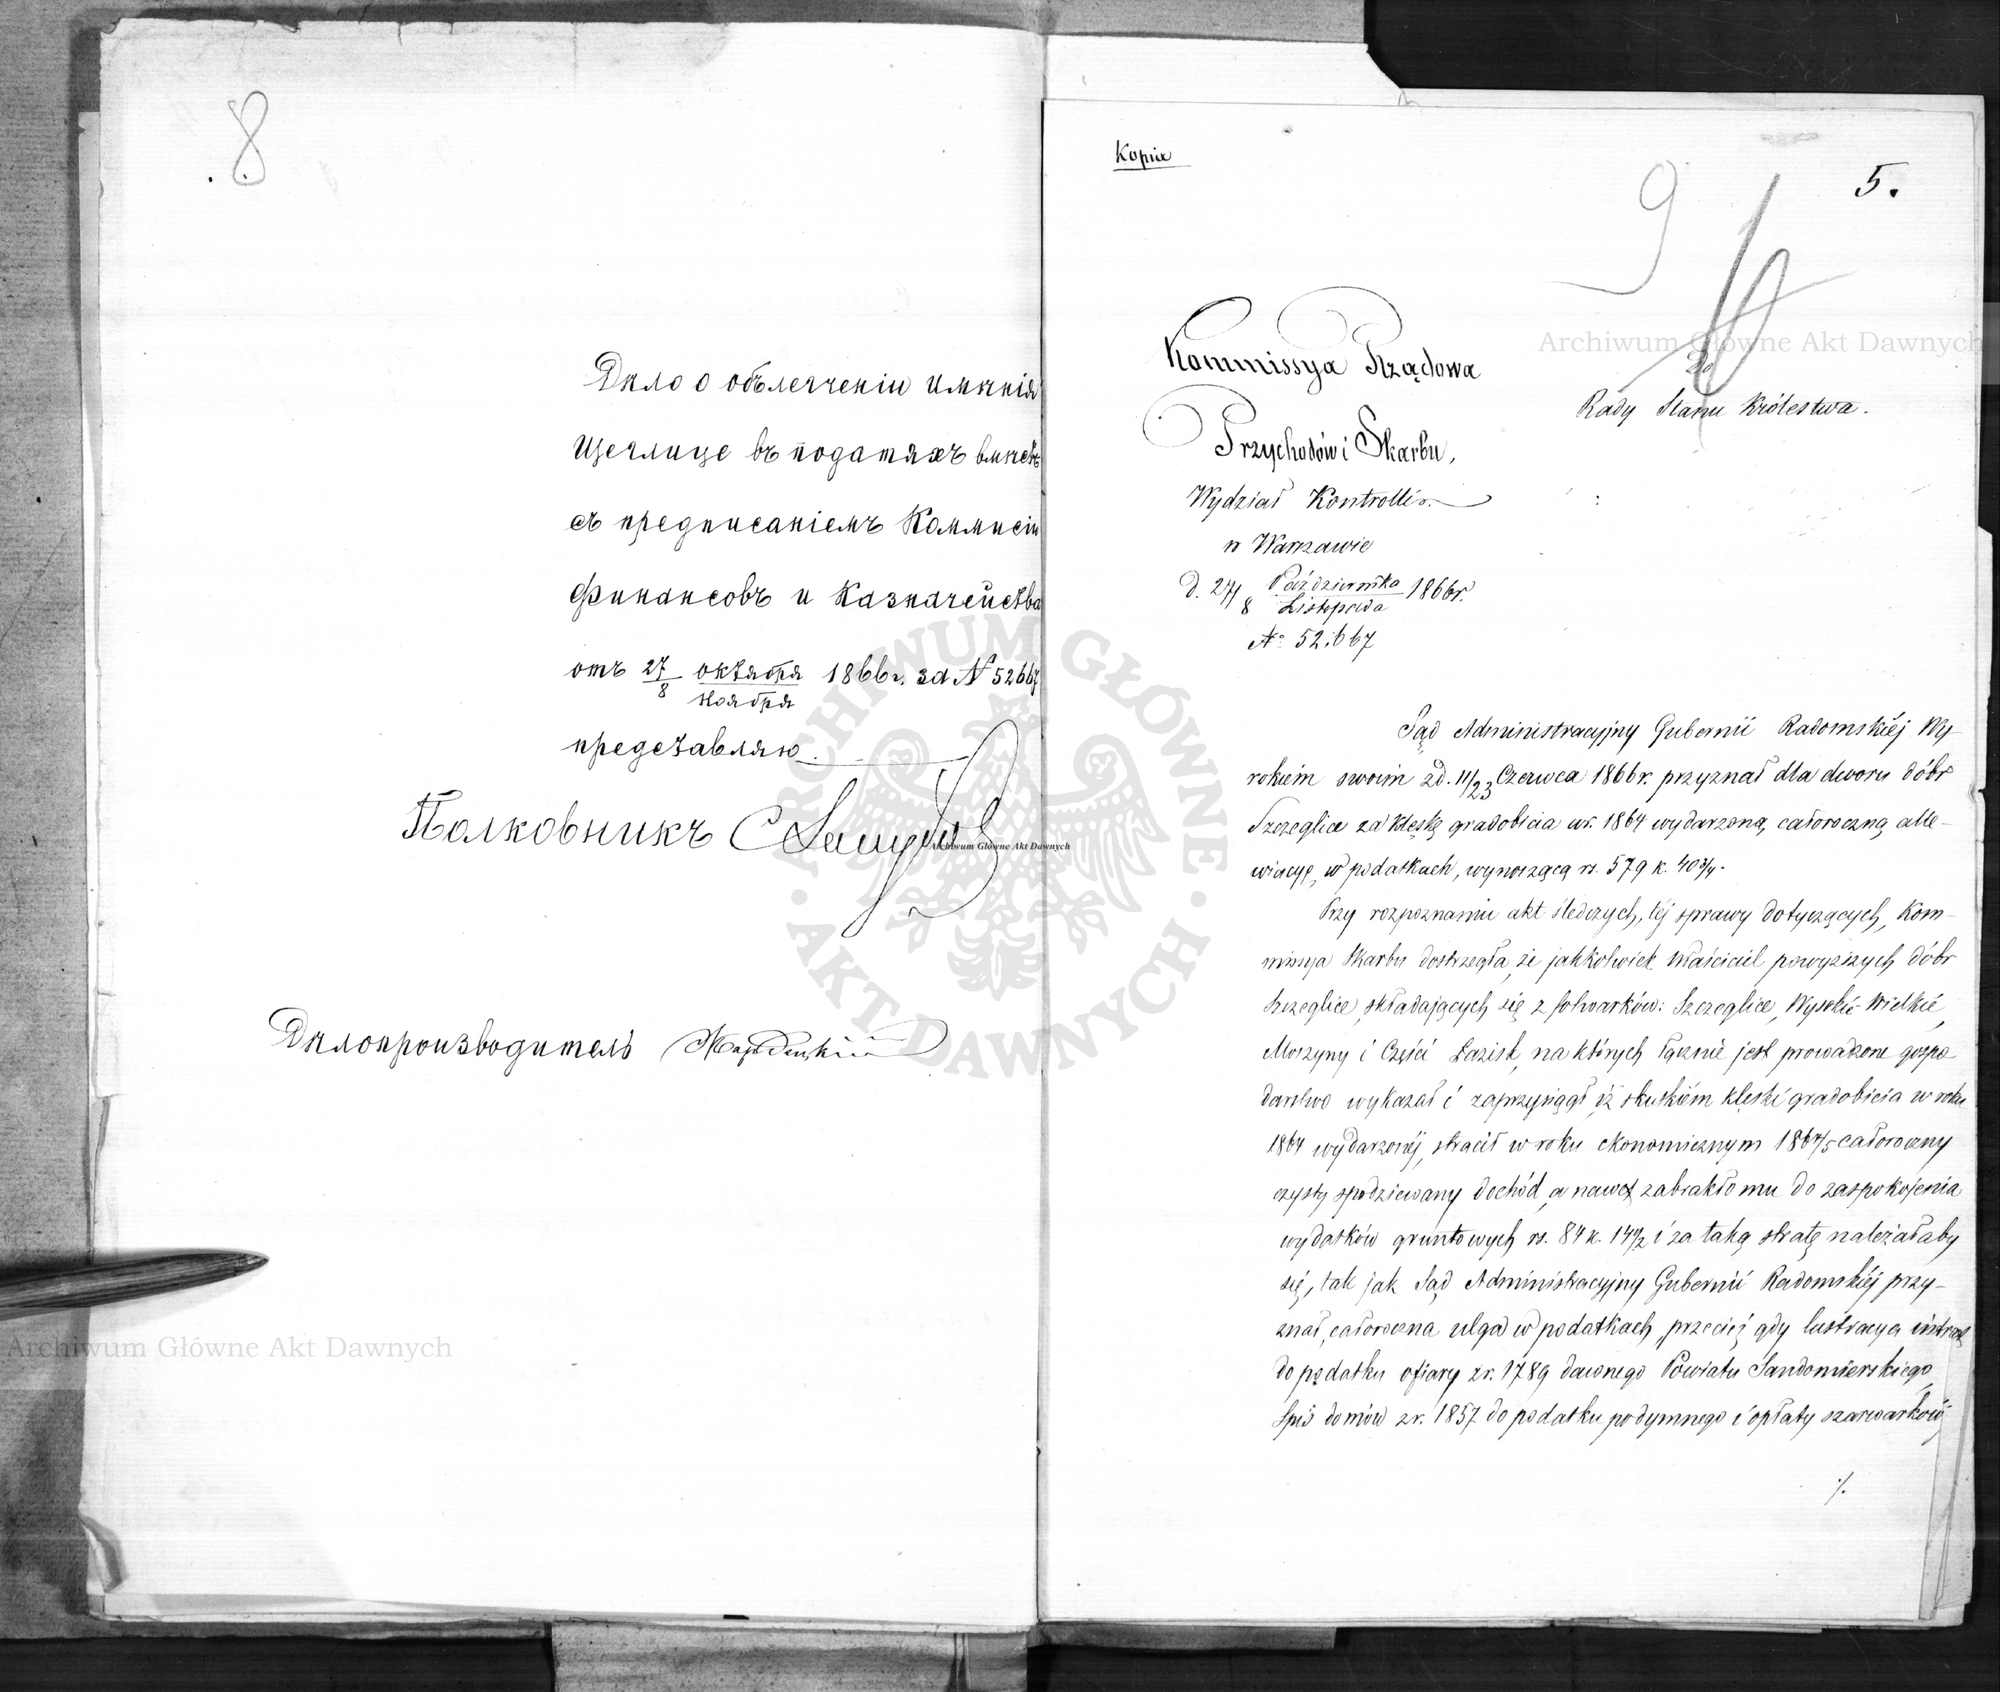 8
Дѣло о облегченіи имѣнія
Щеглице въ податяхъ вмѣстѣ
съ предписаніемъ Коммисіи
Финансовъ и Казначейства
отъ 27/8 октября/ноября 1866 г. за N 52667
представляю.
Полковникъ
Дѣлопроизводитель
Kopia
9
5.
Kommissya Rządowa
Przychodów i Skarbu,
Wydział Kontrolli
w Warszawie
d. 27/8 Października/Listopada 1866 r.
No 52.667
Do
Rady Stanu Królestwa.
Sąd Administracyjny Gubernii Radomskiéj Wy-
rokiem swoim zd. 11/23 Czerwca 1866 r. przyznał dla dworu dóbr
Szczeglice za klęskę gradobicia w r. 1864 wydarzoną, całoroczną alle-
wiacyę w podatkach, wynoszącą rs. 579 k. 40 3/4.
Przy rozpoznaniu akt śledczych, téj sprawy dotyczących, Kom-
missya Skarbu dostrzegła, że jakkolwiek właściciel powyższych dóbr
Szczeglice, składających się z folwarków: Szczeglice, Wysokie Wielkie,
Moszyny i Części Łazisk, na których łącznie jest prowadzone gospo-
darstwo wykazał i zaprzysiągł iż skutkiem klęski gradobicia w roku
1864 wydarzonéj, stracił w roku ekonomicznym 1864/5 całoroczny
czysty spodziewany dochód, a nawet zabrakło mu do zaspokojenia
wydatków gruntowych rs. 84 k. 14 1/2 i za taką stratę należałaby
się, tak jak Sąd Administracyjny Gubernii Radomskiéj przy-
znał, całoroczna ulga w podatkach, przecież gdy lustracya intrat
do podatku ofiary z r. 1789 dawnego Powiatu Sandomierskiego,
Spis domów z r. 1857 do podatku podymnego i opłaty szarwarkowéj
./.
Archiwum Główne Akt Dawnych
Archiwum Główne Akt Dawnych
Archiwum Główne Akt Dawnych
ARCHIWUM GŁÓWNE · AKT DAWNYCH ·